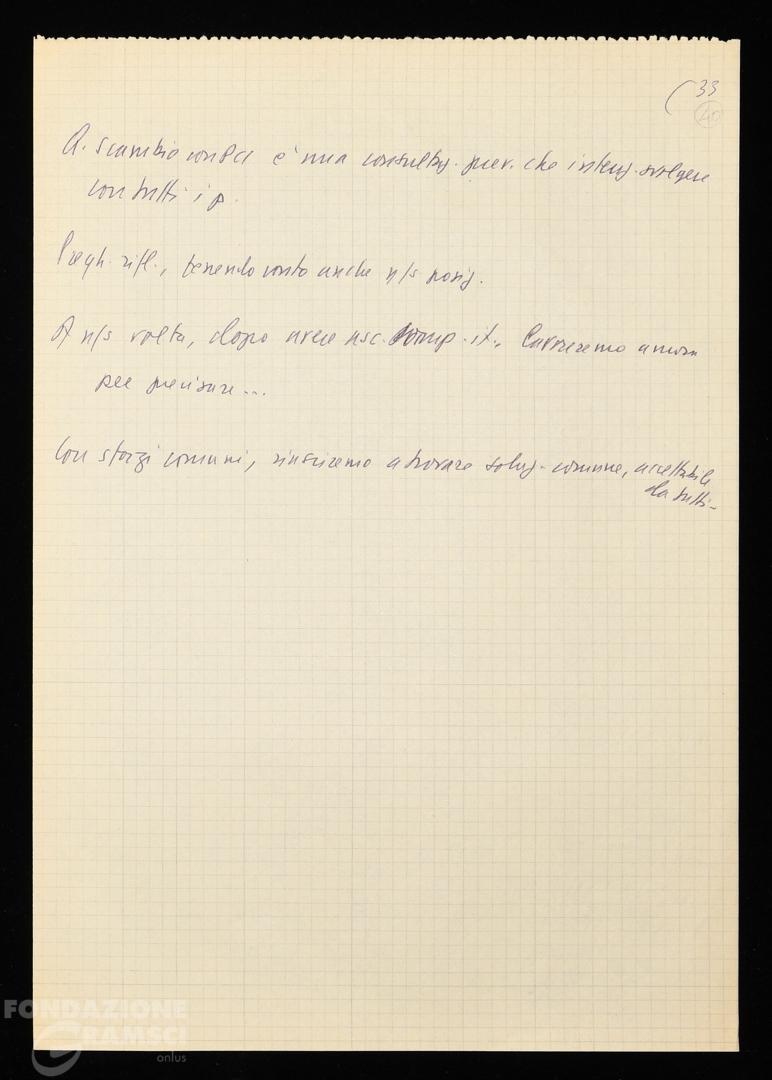 33
40
Q. scambio con PCI è una consultaz. prev. che intenz. svolgere
con tutti i p.
Pregh. rifl., tenendo conto anche n/s posiz.
A n/s volta, dopo avere asc. comp. it., lavoreremo ancora
per precisare...
Con sforzi comuni, riusciremo a trovare soluz. comune, accettabile
da tutti.
FONDAZIONE
GRAMSCI
onlus